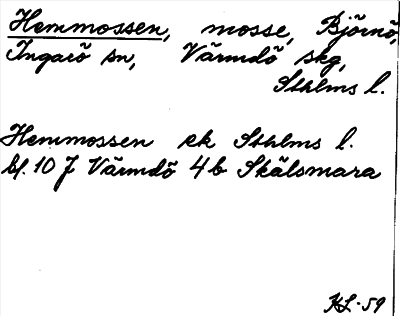 Hemmossen, mosse, Björnö,
Ingarö sn, Värmdö skg,
Sthlms l.
Hemmossen ek Sthlms l.
bl. 10 J Värmdö 4b Skälsmara
KL-59